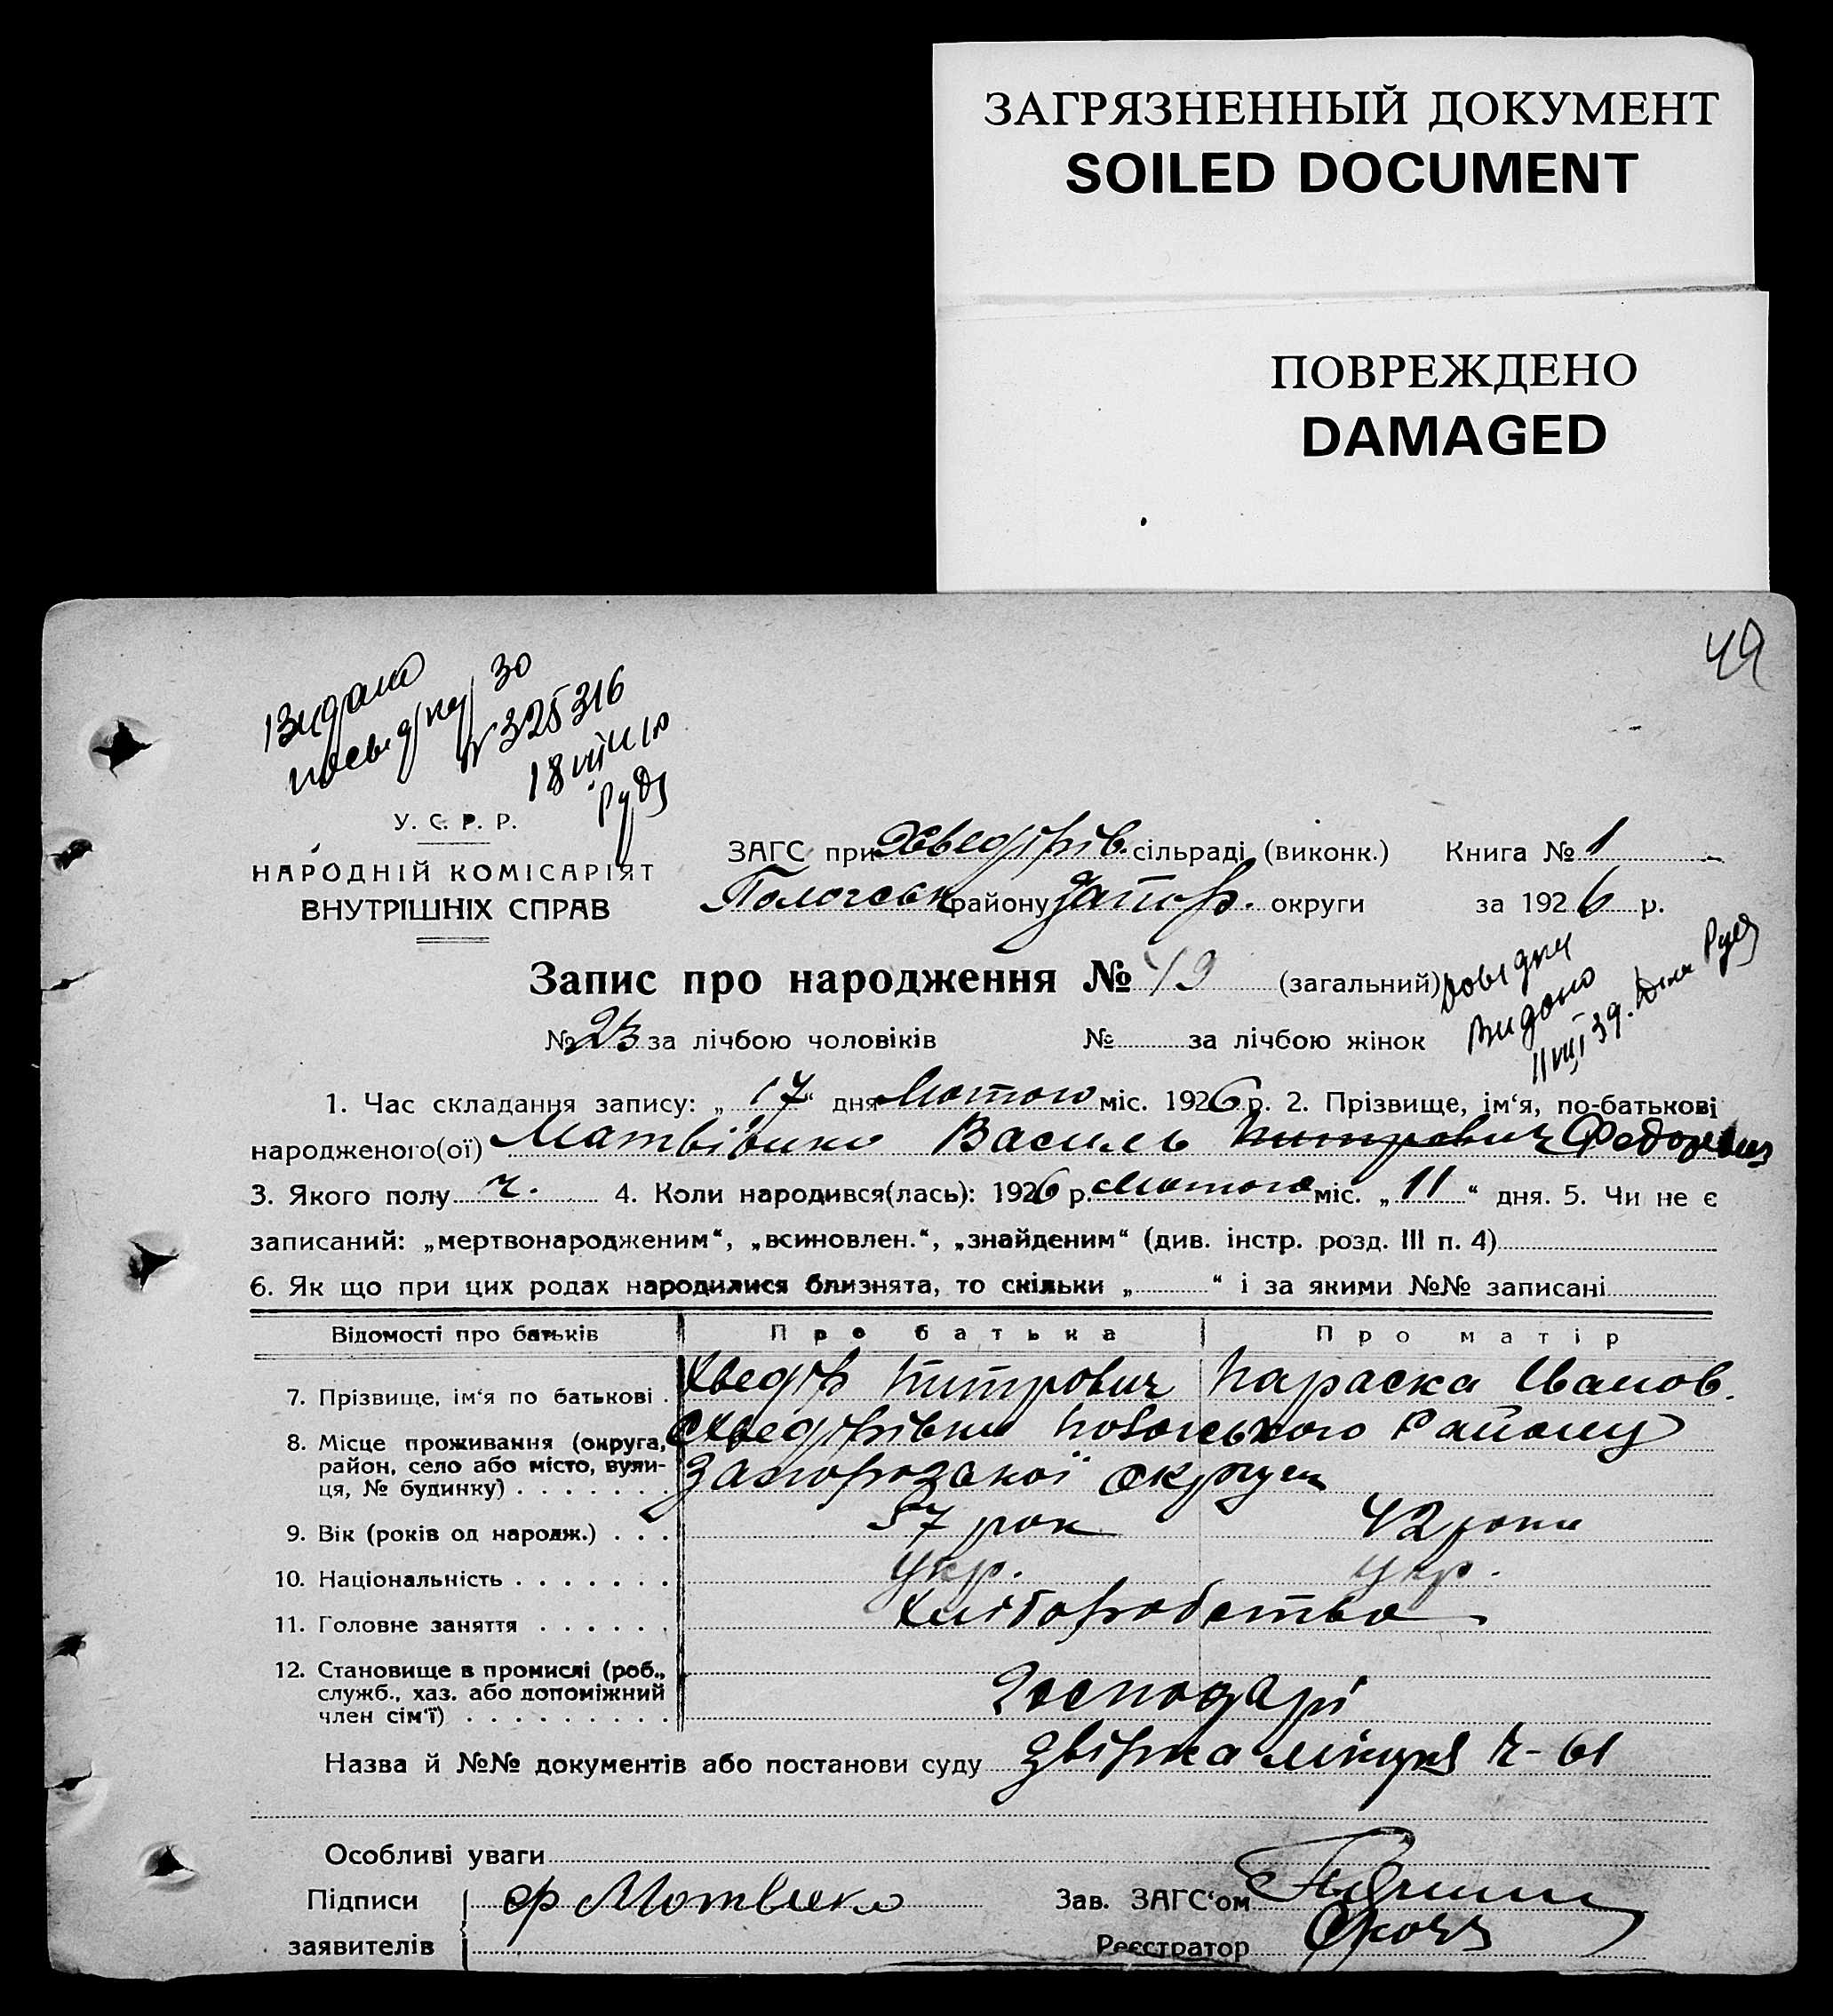 ЗАГРЯЗНЕННЫЙ ДОКУМЕНТ
SOILED DOCUMENT
ПОВРЕЖДЕНО
DAMAGED
49
Видано
посвідку зо
№ 325316
18 VII
Руд
У. С. Р. Р.
НАРОДНІЙ КОМІСАРІЯТ
ВНУТРІШНІХ СПРАВ
ЗАГС при Хведорів. сільраді (виконк.) Книга № 1
Пологськ району Запор. округи за 1926 р.
Запис про народження № 49 (загальний)
Довідку
Видано
11 VIII 39.
№ 23 за лічбою чоловіків № за лічбою жінок
1. Час складання запису: „17“ дня Лютого міс. 1926 р. 2. Прізвище, ім‘я, по-батькові
народженого(ої) Матвієнко Василь Питрович Федорович
3. Якого полу ч. 4. Коли народився(лась): 1926 р. Лютого міс. „11“ дня. 5. Чи не є
записаний: „мертвонародженим“, „всиновлен.“, „знайденим“ (див. інстр. розд. III п. 4)
6. Як що при цих родах народилися близнята, то скільки „ “ і за якими №№ записані
Відомості про батьків Про батька Про матір
7. Прізвище, ім‘я по батькові . Хведір Питрович Параска Іванов.
8. Місце проживання (округа, район, село або місто, вули- ця, № будинку) . . . . . . . Хведорівка Пологського Району
Запорозької округи
9. Вік (років од народж.) . . . 57 рок 42 роки
10. Національність . . . . . . . укр. укр.
11. Головне заняття . . . . . . Хліборобство
12. Становище в промислі (роб., служб., хаз. або допоміжний член сім‘ї) . . . . . . . . . Господарі
Назва й №№ документів або постанови суду Звірка ч-61
Особливі уваги
Підписи Ф Мотвиєко Зав. ЗАГС‘ом
заявителів Реєстратор